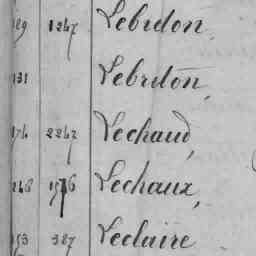 189 1247 Lebreton,
131 Lebreton,
174 2247 Lechaud,
248 1576 Lechaux,
153 387 Leclaire